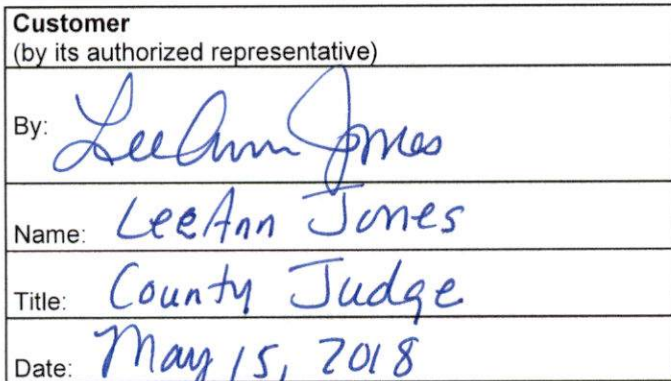 Customer
(by its authorized representative)
By: LeeAnn Jones
Name: LeeAnn Jones
Title: County Judge
Date: May 15, 2018